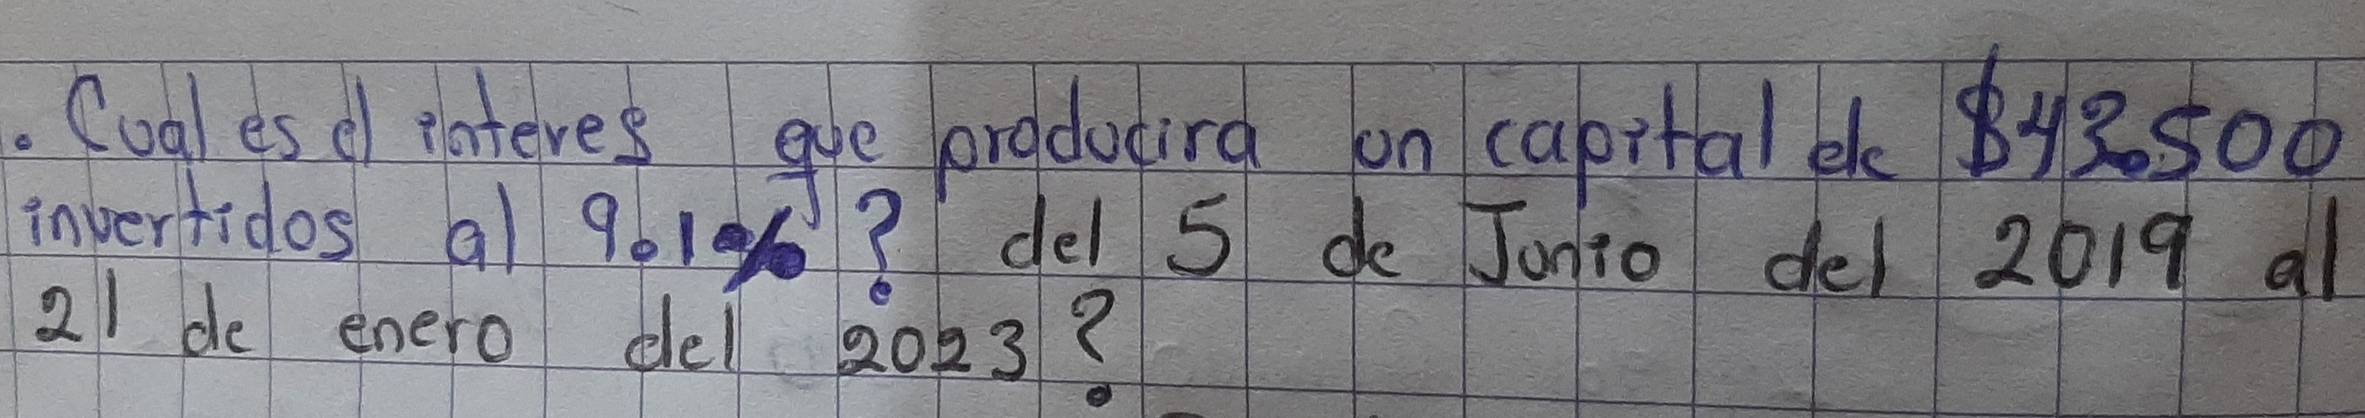 . Cual es el interes que producira un capital de $43.500
invertidos al 9.1%? del 5 de Junio del 2019 al
21 de enero del 2023?